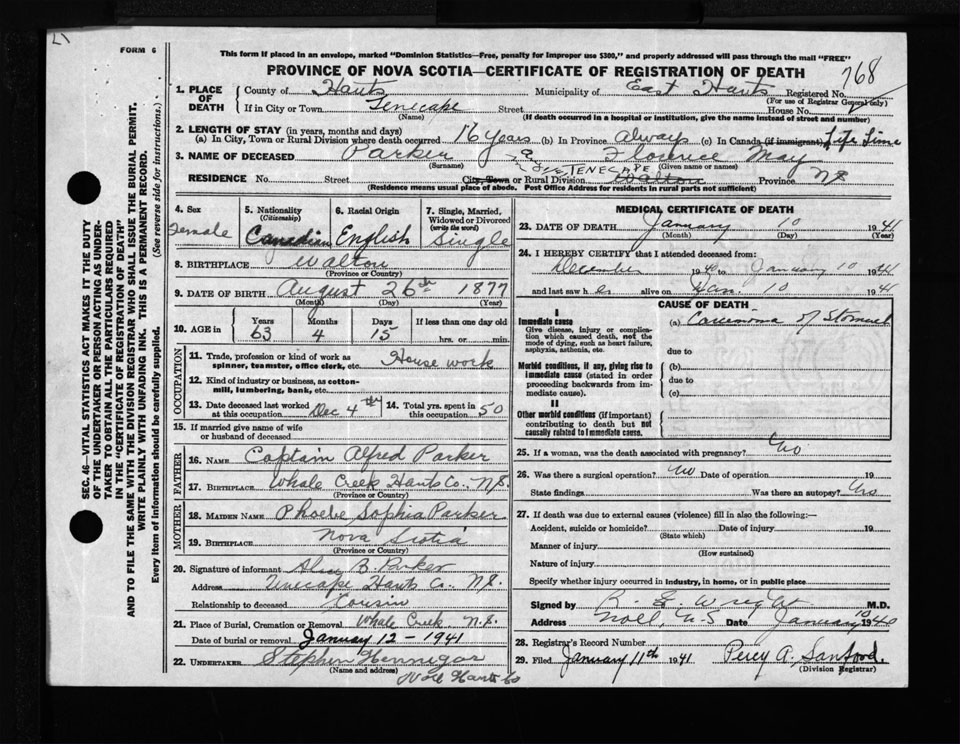 FORM 6
This form if placed in an envelope, marked "Dominion Statistics—Free, penalty for improper use $300," and properly addressed will pass through the mail "FREE"
PROVINCE OF NOVA SCOTIA—CERTIFICATE OF REGISTRATION OF DEATH
768
1. PLACE OF DEATH
County of Hants Municipality of East Hants Registered No.
(For use of Registrar General only)
If in City or Town Tenecape Street House No.
(Name) (If death occurred in a hospital or institution, give the name instead of street and number)
2. LENGTH OF STAY (in years, months and days)
(a) In City, Town or Rural Division where death occurred 16 years (b) In Province always (c) In Canada (if immigrant) Life Time
3. NAME OF DECEASED Parker Florence May
(Surname) (Given name or names)
RESIDENCE No. Street City, Town or Rural Division TENECAPE Walton Province NS
(Residence means usual place of abode. Post Office Address for residents in rural parts not sufficient)
4. Sex Female
5. Nationality (Citizenship) Canadian
6. Racial Origin English
7. Single, Married, Widowed or Divorced (write the word) Single
8. BIRTHPLACE Walton
(Province or Country)
9. DATE OF BIRTH August 26th 1877
(Month) (Day) (Year)
10. AGE in Years 63 Months 4 Days 15 If less than one day old hrs. or min.
OCCUPATION
11. Trade, profession or kind of work as spinner, teamster, office clerk, etc. House work
12. Kind of industry or business, as cotton-mill, lumbering, bank, etc.
13. Date deceased last worked at this occupation Dec 4th 14. Total yrs. spent in this occupation 50
15. If married give name of wife or husband of deceased
FATHER
16. NAME Captain Alfred Parker
17. BIRTHPLACE Whale Creek Hants Co., N.S.
(Province or Country)
MOTHER
18. MAIDEN NAME Phoebe Sophia Parker
19. BIRTHPLACE Nova Scotia
(Province or Country)
20. Signature of informant B. Parker
Address Hants Co. N.S.
Relationship to deceased Cousin
21. Place of Burial, Cremation or Removal Whale Creek, N.S.
Date of burial or removal January 12 - 1941
22. UNDERTAKER Stephen Hennigar
(Name and address) Hants Co
MEDICAL CERTIFICATE OF DEATH
23. DATE OF DEATH January 10 1941
(Month) (Day) (Year)
24. I HEREBY CERTIFY that I attended deceased from:
December 1940 to January 10 1941
and last saw her alive on Jan. 10 1941
CAUSE OF DEATH
I
Immediate cause
Give disease, injury or complication which caused death, not the mode of dying, such as heart failure, asphyxia, asthenia, etc.
(a) Carcinoma of Stomach
due to
Morbid conditions, if any, giving rise to immediate cause (stated in order proceeding backwards from immediate cause).
(b)
due to
(c)
II
Other morbid conditions (if important) contributing to death but not causally related to immediate cause.
25. If a woman, was the death associated with pregnancy? No
26. Was there a surgical operation? No Date of operation 19
State findings Was there an autopsy? No
27. If death was due to external causes (violence) fill in also the following:—
Accident, suicide or homicide? Date of injury 19
(State which)
Manner of injury
(How sustained)
Nature of injury
Specify whether injury occurred in industry, in home, or in public place
Signed by Wright M.D.
Address Noel, N.S Date January 10 1940
28. Registrar's Record Number
29. Filed January 11th 1941 Percy A. Sanford.
(Division Registrar)
SEC. 46—VITAL STATISTICS ACT MAKES IT THE DUTY
OF THE UNDERTAKER OR PERSON ACTING AS UNDER-
TAKER TO OBTAIN ALL THE PARTICULARS REQUIRED
IN THE "CERTIFICATE OF REGISTRATION OF DEATH"
AND TO FILE THE SAME WITH THE DIVISION REGISTRAR WHO SHALL ISSUE THE BURIAL PERMIT.
WRITE PLAINLY WITH UNFADING INK. THIS IS A PERMANENT RECORD.
Every item of Information should be carefully supplied. (See reverse side for instructions.)